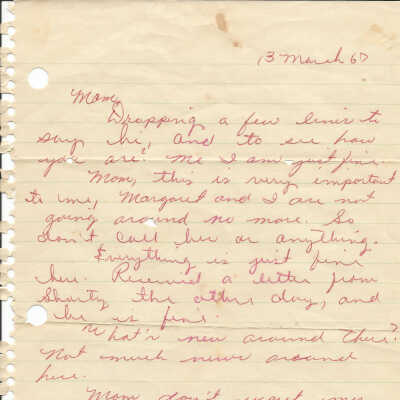 13 March 67
Mom,
Dropping a few lines to
say hi, and to see how
you are? Me I am just fine.
Mom, this is very important
to me, Margaret and I are not
going around no more. So
don't call her or anything.
Everything is just fine
here. Received a letter from
Shorty the other day, and
he is fine.
What's new around there?
Not much news around
here.
Mom don't want